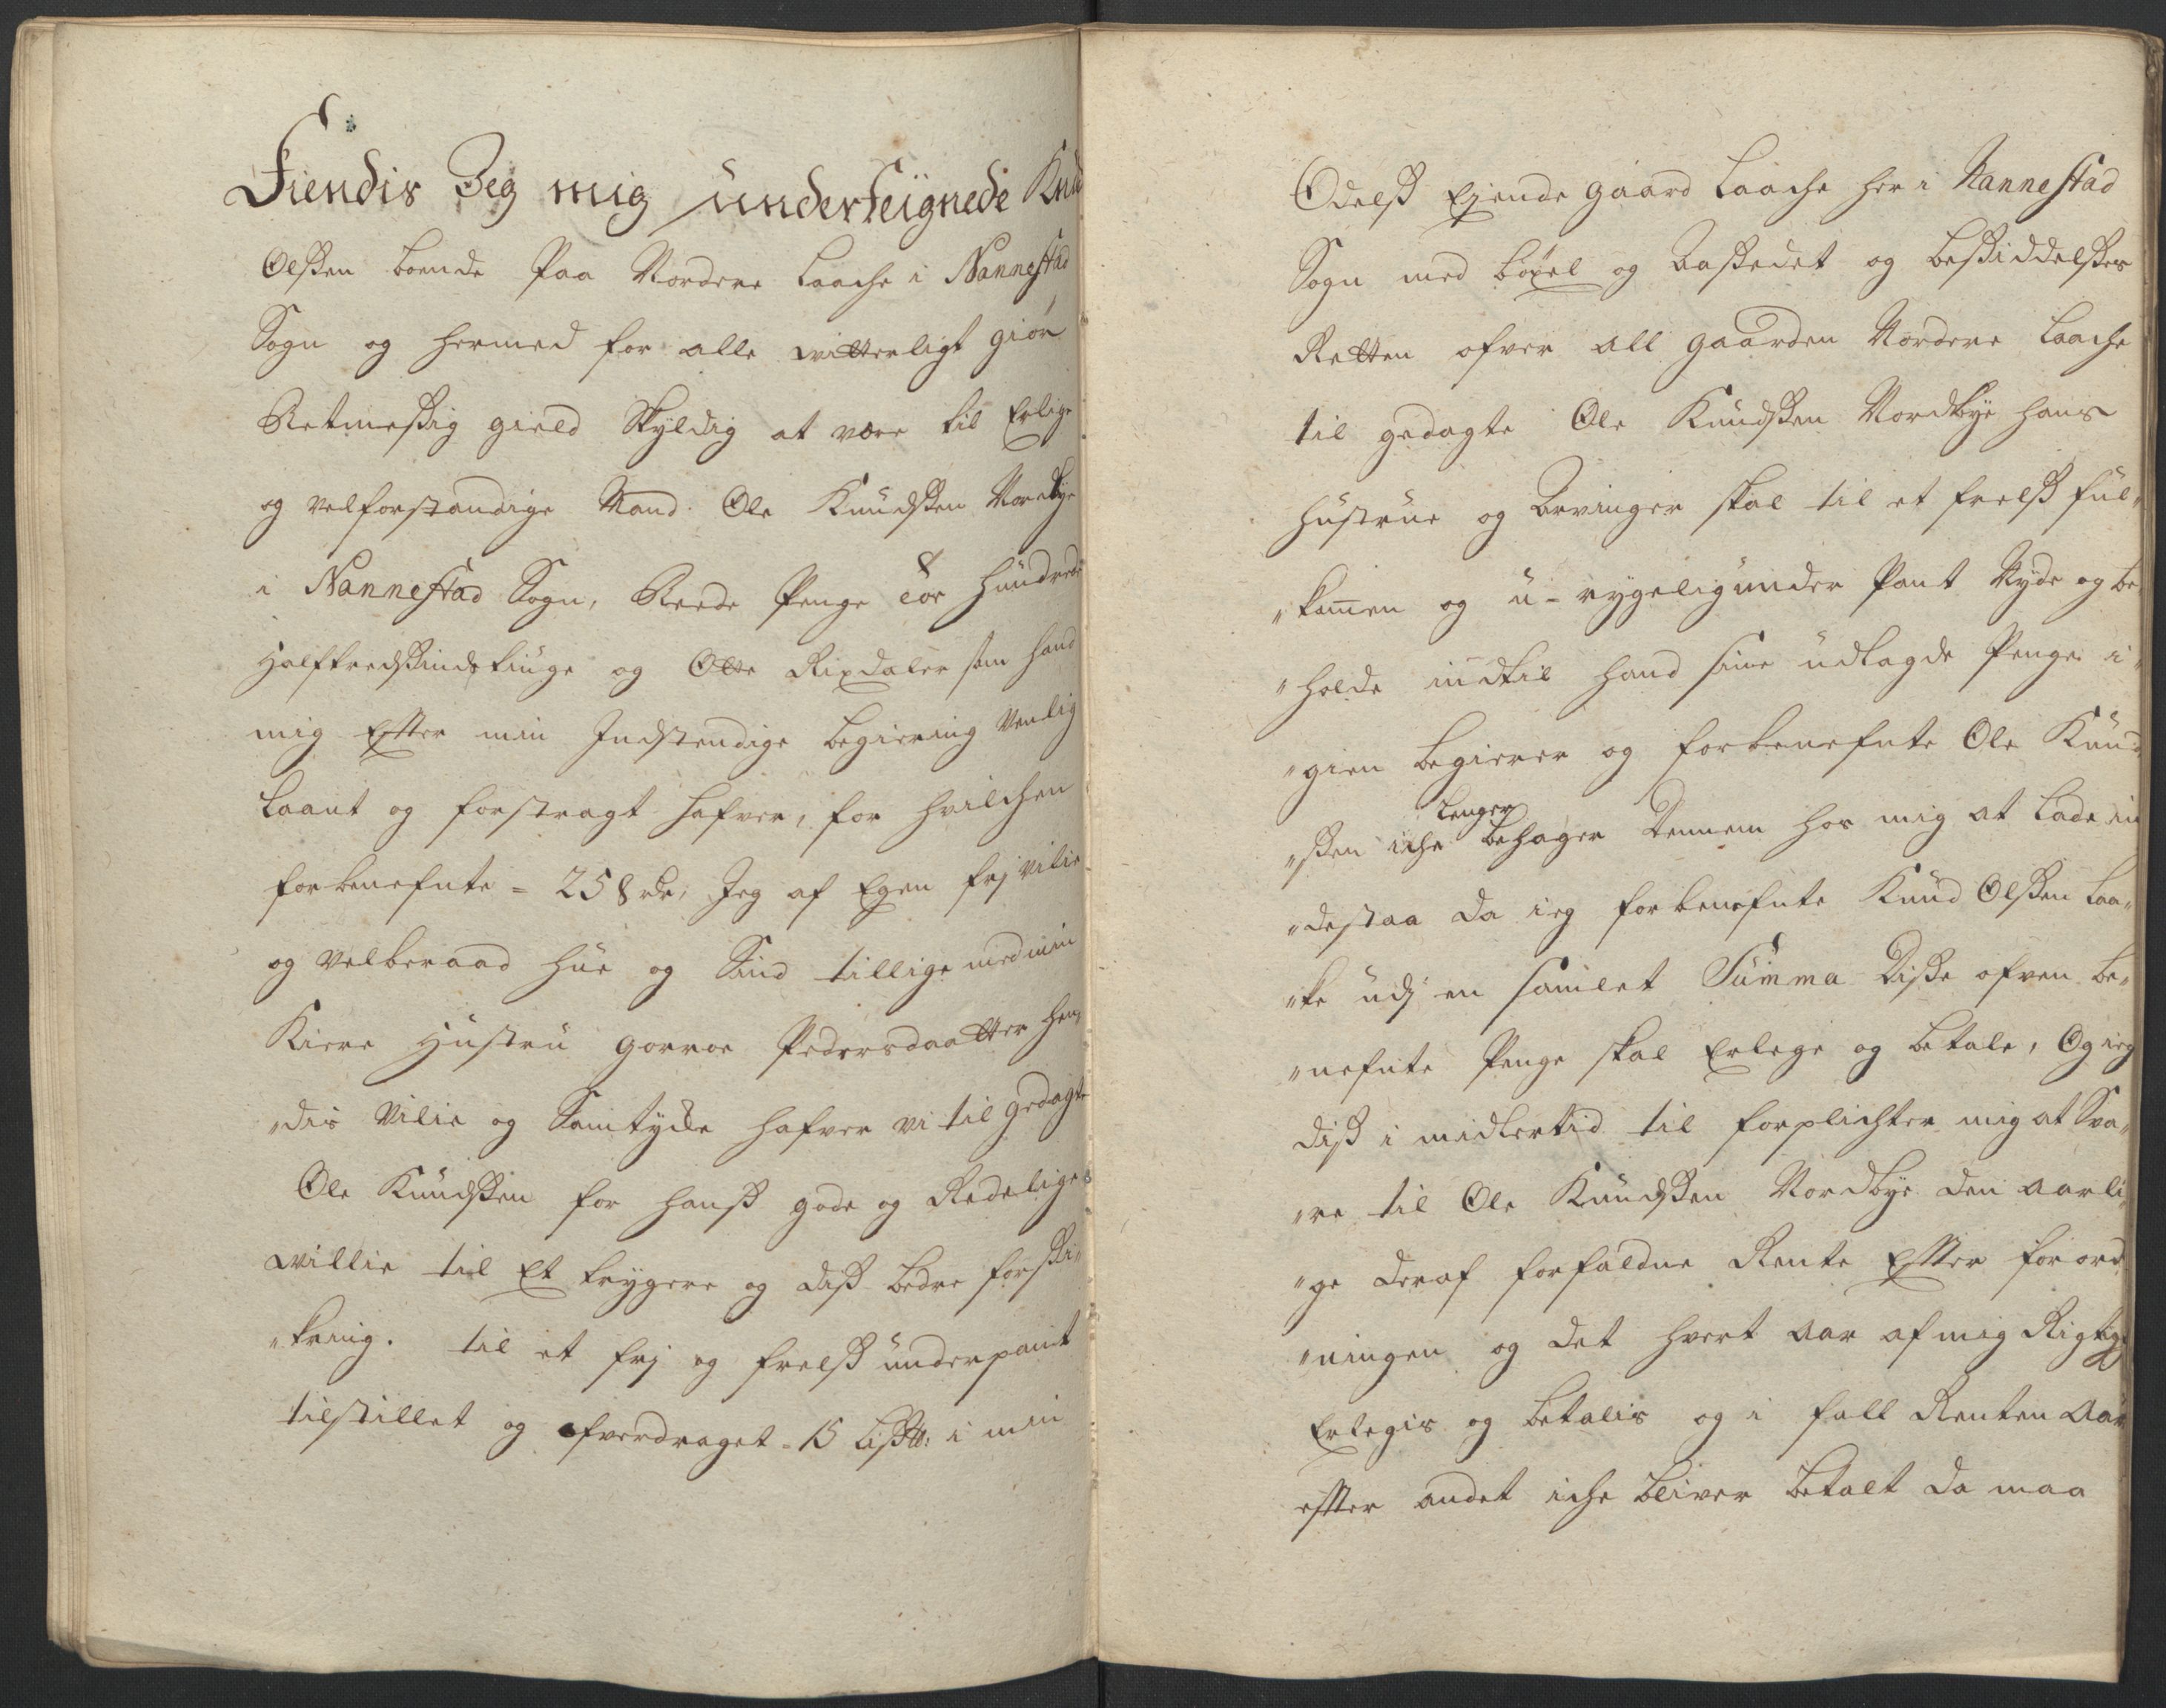 Kiendis Jeg mig underteignede Knud
Olßen boende paa Nordere Laache i Nannestad
Sogn og hermed for alle witterligt giør
Retmeßig gield Skyldig at være til Erlige
og velforstandige Mand Ole Knudßen Nordbye
i Nannestad Sogn, Reede Penge toe hundrede
halftredßindstiuge og Otte Rixdaler som hand
mig Efter min Indstendige begiering Venlig
laant og forstragt hafver, for hvilchen
forbenefnte = 258 rdr, Jeg af Egen frj vilie
og velberaad hue og Sind tillige med min
Kiere Hustru gorroe Pedersdaatter hen„
„dis Vilie og Samtyche hafver vi til gedagte
Ole Knudßen for hanß gode og Redelige
willie til Et trygere og diß bedre forßi„
„kring. til et frj og frelß underpant
tilstillet og ofverdraget = 15 Lißtt: i min
Odelß Ejende gaard Laache her i Nannestad
Sogn med böxel og Aaßedet og beßiddelßes
Retten ofver all gaarden Nordere Laache
til gedagte Ole Knudßen Nordbye hans
hustrue og Arvinger skal til et frelß ful„
„kommen og u-rygelig under Pant Nyde og be„
„holde indtil hand sine udlagde Penge i„
„gien begierer og forbenefnte Ole Knud„
„ßen iche lenger behager dennem hos mig at lade in„
„destaa da ieg forbenefnte Knud Olßen Laa„
„ke udj en samlet Summa Diße ofven be„
„nefnte Penge skal Erlege og betale, Og ieg
diß i midlertid til forplichter mig at Sva„
„re til Ole Knudßen Nordbye den aarli„
„ge deraf forfaldne Rente Efter forord„
„ningen og det hvert Aar af mig Rigtig
Erlegis og betalis og i fall Renten Aar
efter andet iche bliver betalt da maa